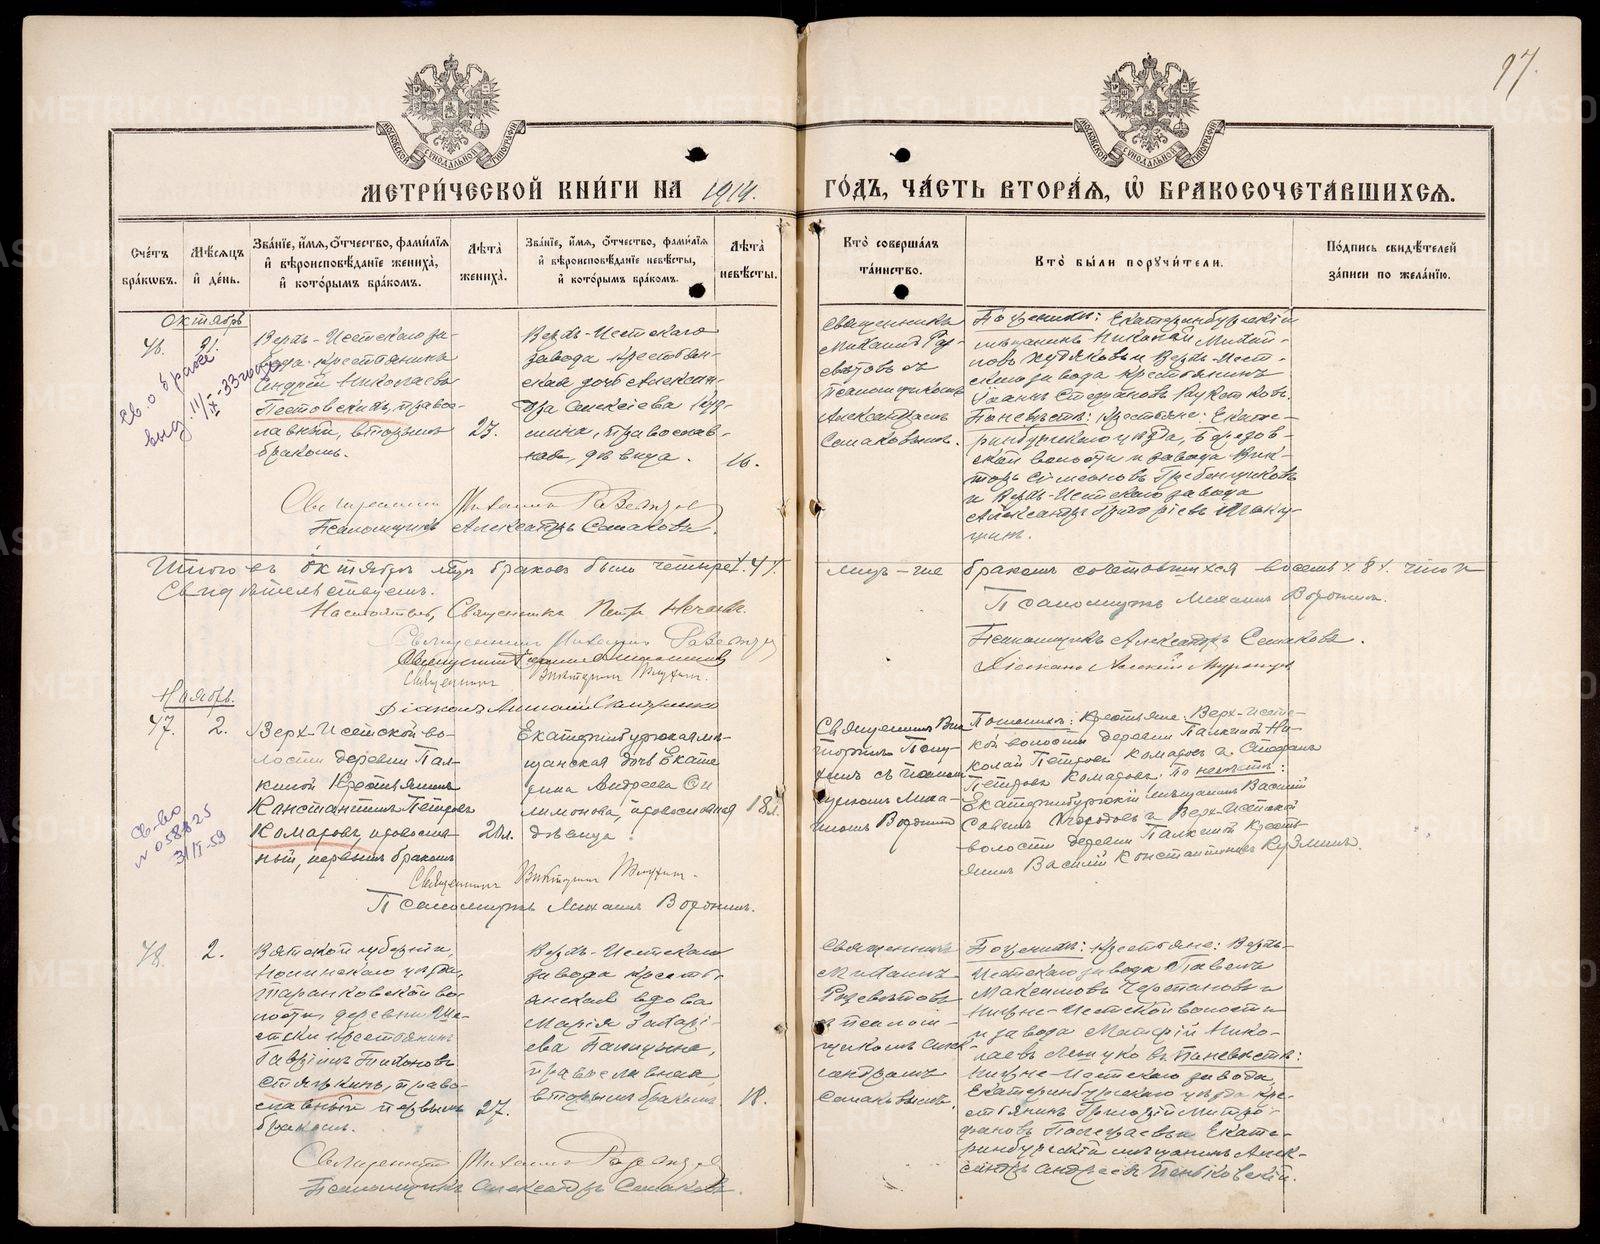 97.
МОСКОВСКОЙ СѴНОДАЛЬНОЙ ТИПОГРАФІИ
МОСКОВСКОЙ СѴНОДАЛЬНОЙ ТИПОГРАФІИ
МЕТРИ́ЧЕСКОЙ КНИ́ГИ НА 1914.
ГО́ДЪ, ЧА́СТЬ ВТОРА́Ѧ, Ѿ БРАКОСОЧЕТА́ВШИХСѦ.
Сче́тъ бра́ковъ.
Мѣ́сѧцъ и҆ де́нь.
Зва́нїе, и҆́мѧ, ѻ҆́тчество, фами́лїѧ и҆ вѣроисповѣ́данїе жениха̀, и҆ кото́рымъ бра́комъ.
Лѣта̀ жениха̀.
Зва́нїе, и҆́мѧ, ѻ҆́тчество, фами́лїѧ и҆ вѣроисповѣ́данїе невѣ́сты, и҆ кото́рымъ бра́комъ.
Лѣта̀ невѣ́сты.
Кто̀ соверша́лъ та́инство.
Кто̀ бы́ли порꙋчи́тели.
По́дпись свидѣ́телей за́писи по жела́нїю.
Октябрь
46.
31.
Верхъ-Исетскаго за-
вода крестьянинъ
Андрей Николаевъ
Пестовскихъ, право-
славный, вторымъ
бракомъ.
23.
Верхъ-Исетскаго
завода крестьян-
ская дочь Алексан-
дра Алексіева
православ-
ная, дѣвица.
16.
Священникъ
Михаилъ
съ
Псаломщикомъ
Александромъ
Семаковымъ.
По женихѣ: Екатеринбургскій
мѣщанинъ Николай Михай-
ловъ Худяковъ и Верхъ-Исет-
скаго завода крестьянинъ
Іоаннъ Стефановъ
По невѣстѣ: крестьяне: Екате-
ринбургскаго уѣзда, Березов-
ской волости и завода Вик-
торъ Симеоновъ Гребенщиковъ
и Верхъ-Исетскаго завода
Александръ Григоріевъ
Св. о браке
выд. 11/X-33 года
Священникъ Михаилъ
Псаломщикъ Александръ Семаковъ.
Итого въ Октябрѣ м-цѣ браковъ было четыре /.4./.
лицъ-же бракомъ сочетавшихся восемь /.8./. что и
Свидѣтельствуемъ.
Настоятель, Священникъ Петръ
Псаломщикъ Михаилъ Воронинъ.
Священникъ Михаилъ
Псаломщикъ Александръ Семаковъ.
Священникъ
Діаконъ Алексій
Священникъ Викторинъ
Діаконъ
Ноябрь.
47.
2.
Верх-Исетской во-
лости деревни Пал-
киной Крестьянинъ
Константинъ Петровъ
Комаровъ, православ-
ный, первымъ бракомъ
20 л.
Екатеринбургская мѣ-
щанская дочь Екате-
рина Андреева
православная
дѣвица.
18 л.
Священникъ Вик-
съ Псалом-
щикомъ Миха-
иломъ Воронин
По женихѣ: Крестьяне: Верх-Исетс-
кой волости деревни Палкиной Ни-
колай Петровъ Комаровъ и Стефанъ
Петровъ Комаровъ. По невѣстѣ:
Екатеринбургскій мѣщанинъ Василій
Саввинъ и Верх-Исетской
волости деревни Палкиной Кресть-
янинъ Василій Константиновъ Кузминъ.
св-во
N 058825
31/I-59
Священникъ Викторинъ
Псаломщикъ Михаилъ Воронинъ.
48.
2.
Вятской губерніи,
Нолинскаго уѣзда,
Таранковской во-
лости, деревни
крестьянинъ
Гавріилъ Тихоновъ
Стяжкинъ, право-
славный первымъ
бракомъ.
27.
Верхъ-Исетскаго
завода кресть-
янская вдова
Марія Захарі-
ева
православная,
вторымъ бракомъ.
18.
Священникъ
Михаилъ
и псалом-
щикомъ Алек-
сандромъ
Семаковымъ.
По женихѣ: крестьяне: Верхъ-
Исетскаго завода Павелъ
Максимовъ Черепановъ и
Нижне-Исетской волости
и завода Матѳій Нико-
лаевъ По невѣстѣ:
Нижне-Исетскаго завода,
Екатеринбургскаго уѣзда кре-
стьянинъ Григорій Митро-
фановъ и Екате-
ринбургскій мѣщанинъ Алек-
сандръ Андреевъ
Священникъ Михаилъ
Псаломщикъ Александръ Семаковъ.
METRIKI.GASO-URAL.RU